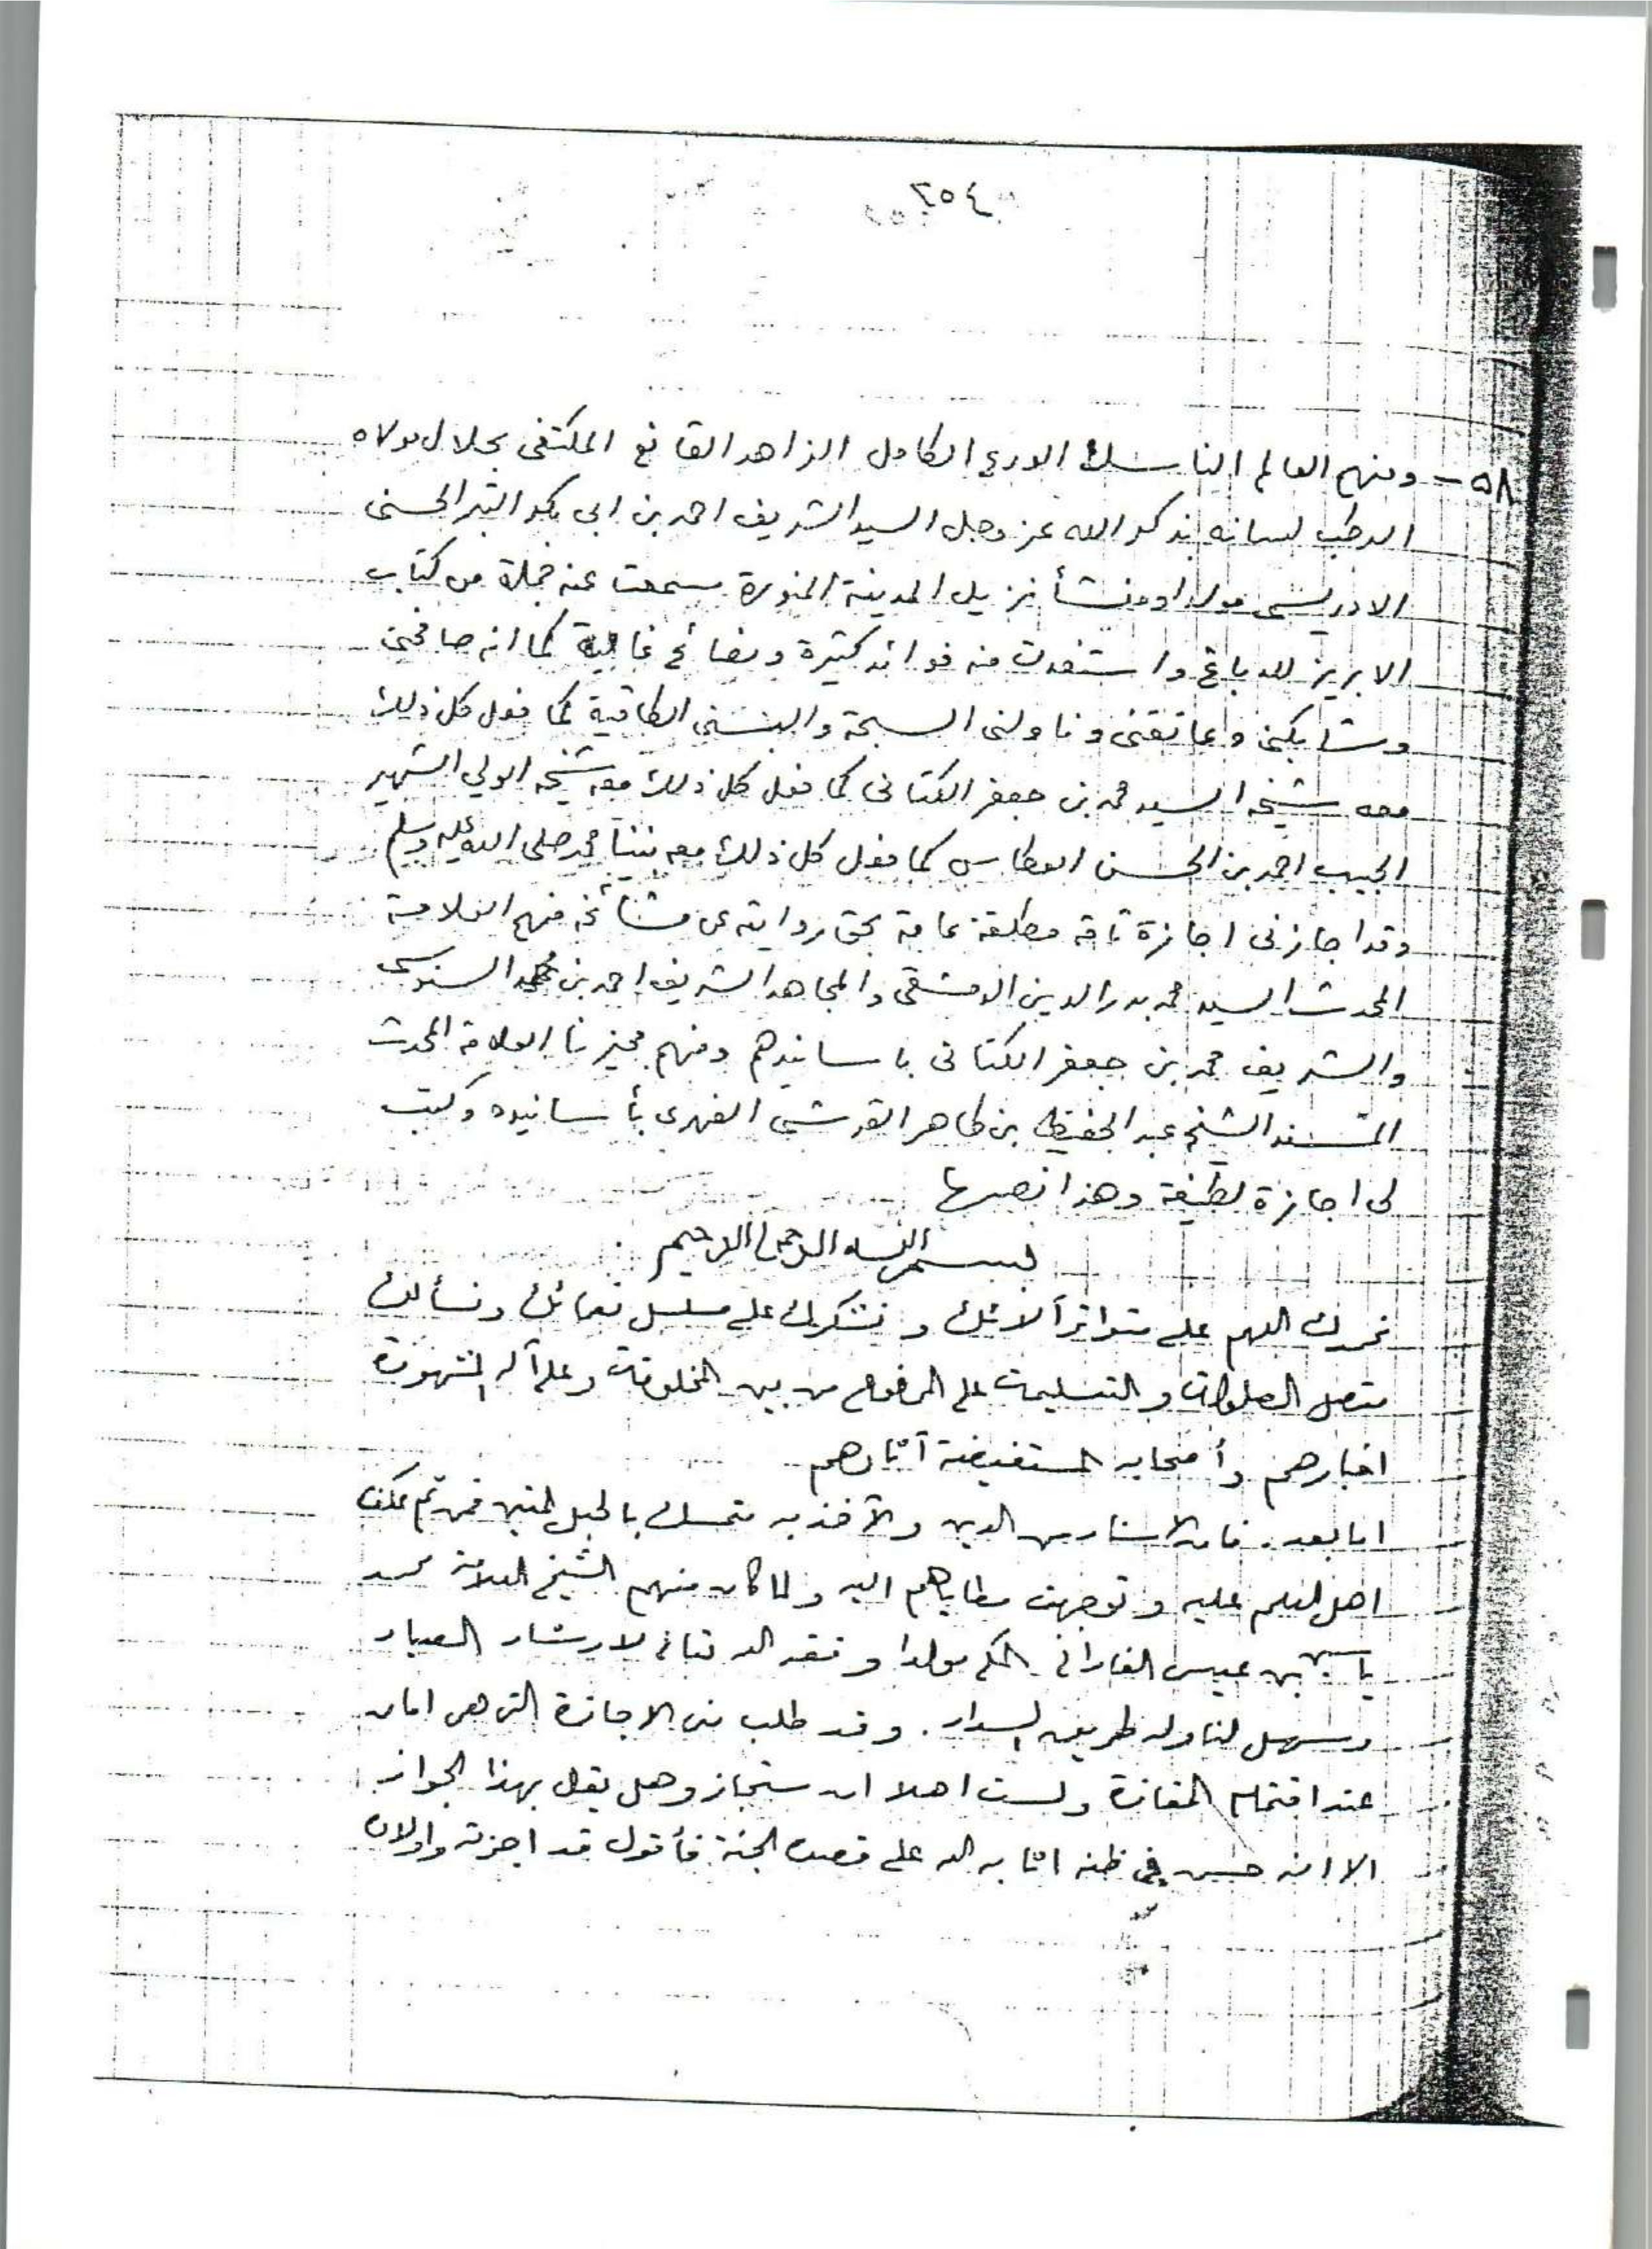 ٢٥٤
٥٨- ومنهم العالم الناسك الورع الكامل الزاهد القانع المكتفى بجلال مولاه
الرطب لسانه بذكر الله عز وجل السيد الشريف احمد بن ابى بكر التبر الحسنى
الادريسى مولدا ومنشأ نزيل المدينة المنورة سمعت عنه جملة من كتاب
الابريز للدباغ واستفدت منه فوائد كثيرة ونصائح غالية كما انه صافحنى
وشابكنى وعانقنى وناولنى السبحة والبسنى الطاقية كما فعل كل ذلك
معه شيخه السيد محمد بن جعفر الكتانى كما فعل كل ذلك معه شيخه الولي الشهير
الحبيب احمد بن الحسن العطاس كما فعل كل ذلك معه نبينا محمد صلى الله عليه وسلم
وقد اجازنى اجازة تامة مطلقة عامة بحق روايته عن مشائخه منهم العلامة
المحدث السيد محمد بدر الدين الدمشقى والمجاهد الشريف احمد بن محمد السنوسى
والشريف محمد بن جعفر الكتانى باسانيدهم ومنهم مجيزنا العلامة المحدث
المسند الشيخ عبد الحفيظ بن طاهر القرشى الفهرى بأسانيده وكتب
لى اجازة لطيفة وهذا نصها
بسم الله الرحمن الرحيم
نحمدك اللهم على متواتر آلائك ونشكرك على مسلسل نعمائك ونسألك
متصل الصلوات والتسليمات على المرفوع من بين المخلوقات وعلى آله المشهورة
اخبارهم وأصحابه المستفيضة آثارهم
اما بعد. فان الاسناد من الدين والآخذ به متمسك بالحبل المتين فمن ثم عكف
اهل العلم عليه وتوجهت مطاياهم اليه ولما كان منهم الشيخ العلامة محمد
ياسين بن عيسى الفادانى المكى مولدا وفقه الله تعالى لارشاد العباد
وسهل لنا وله طريق السداد. وقد طلب منى الاجازة التى هى امان
عند اقتحام المفازة ولست اهلا ان ستجاز وهل يقال بهذا الجواز
الا انه حسن في ظنه اثابه الله على قصده الجنة فأقول قد اجزته واولاده